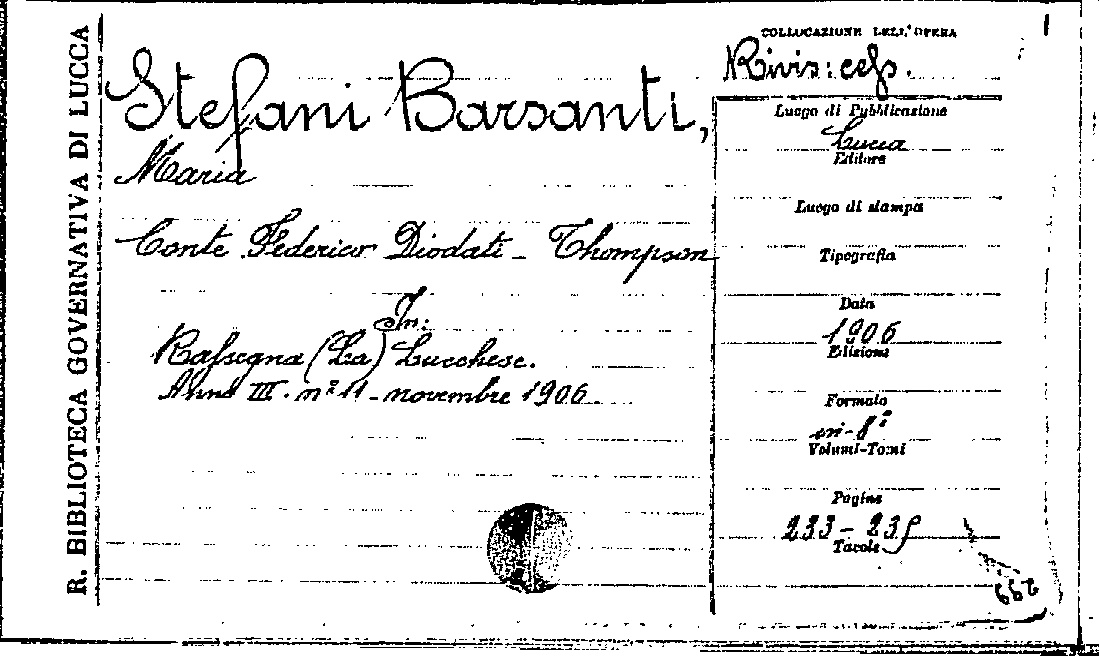 R. BIBLIOTECA GOVERNATIVA DI LUCCA
Stefani Barsanti,
Maria
Conte Federico Diodati - Thompson
In:
Rassegna (La) Lucchese.
Anno III. nº 11 - novembre 1906
COLLOCAZIONE DELL'OPERA
Rivis: cess.
Luogo di Pubblicazione
Lucca
Editore
Luogo di stampa
Tipografia
Data
1906
Edizione
Formato
in-8º
Volumi-Tomi
Pagine
233 - 235
Tavole